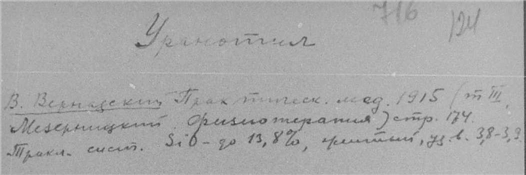 716
124
Уранотил
В. Вернадский Практическ. мед. 1915 (т III,
Мезерницкий, Физиотерапия) стр. 174.
Трикл. сист. SiO - до 13,8%, желтый, уд. в. 3,8-3,9.